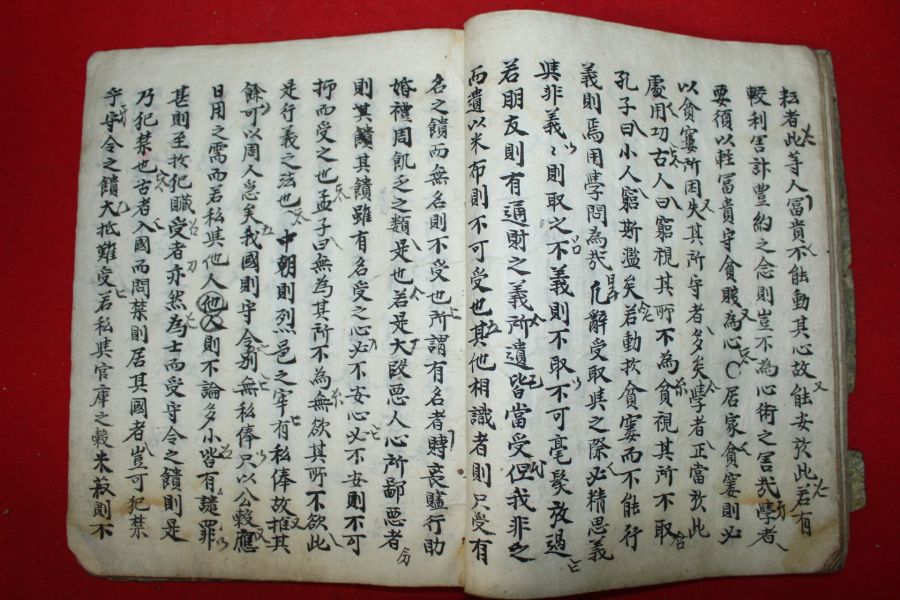 耘者此等人冨貴不能動其心故能安扵此若有
較利害計豊約之念則豈不為心術之害哉學者
要須以輕冨貴守貧賤為心○居家貧窶則必
以貧窶所困失其所守者多矣學者正當扵此
處用功古人曰窮視其所不為貧視其所不取
孔子曰小人窮斯濫矣若動扵貧窶而不能行
義則焉用學問為哉凡辭受取與之際必精思義
與非義〻則取之不義則不取不可毫髮放過
若朋友則有通財之義所遺皆當受但我非乏
而遺以米布則不可受也其他相識者則只受有
名之饋而無名則不受也所謂有名者賻喪贐行助
婚禮周飢乏之類是也若是大段惡人心所鄙惡者
則其饋雖有名受之心必不安心必不安則不可
抑而受之也孟子曰無為其所不為無欲其所不欲此
是行義之法也中朝則烈邑之宰有私俸故推其
餘可以周人急矣我國則守令別無私俸只以公穀應
日用之需而若私與他人他人則不論多小皆有譴罪
甚則至扵犯贓受者亦然為士而受守令之饋則是
乃犯禁也古者入國而問禁則居其國者豈可犯禁
乎守令之饋大抵難受若私與官庫之穀米菽則不